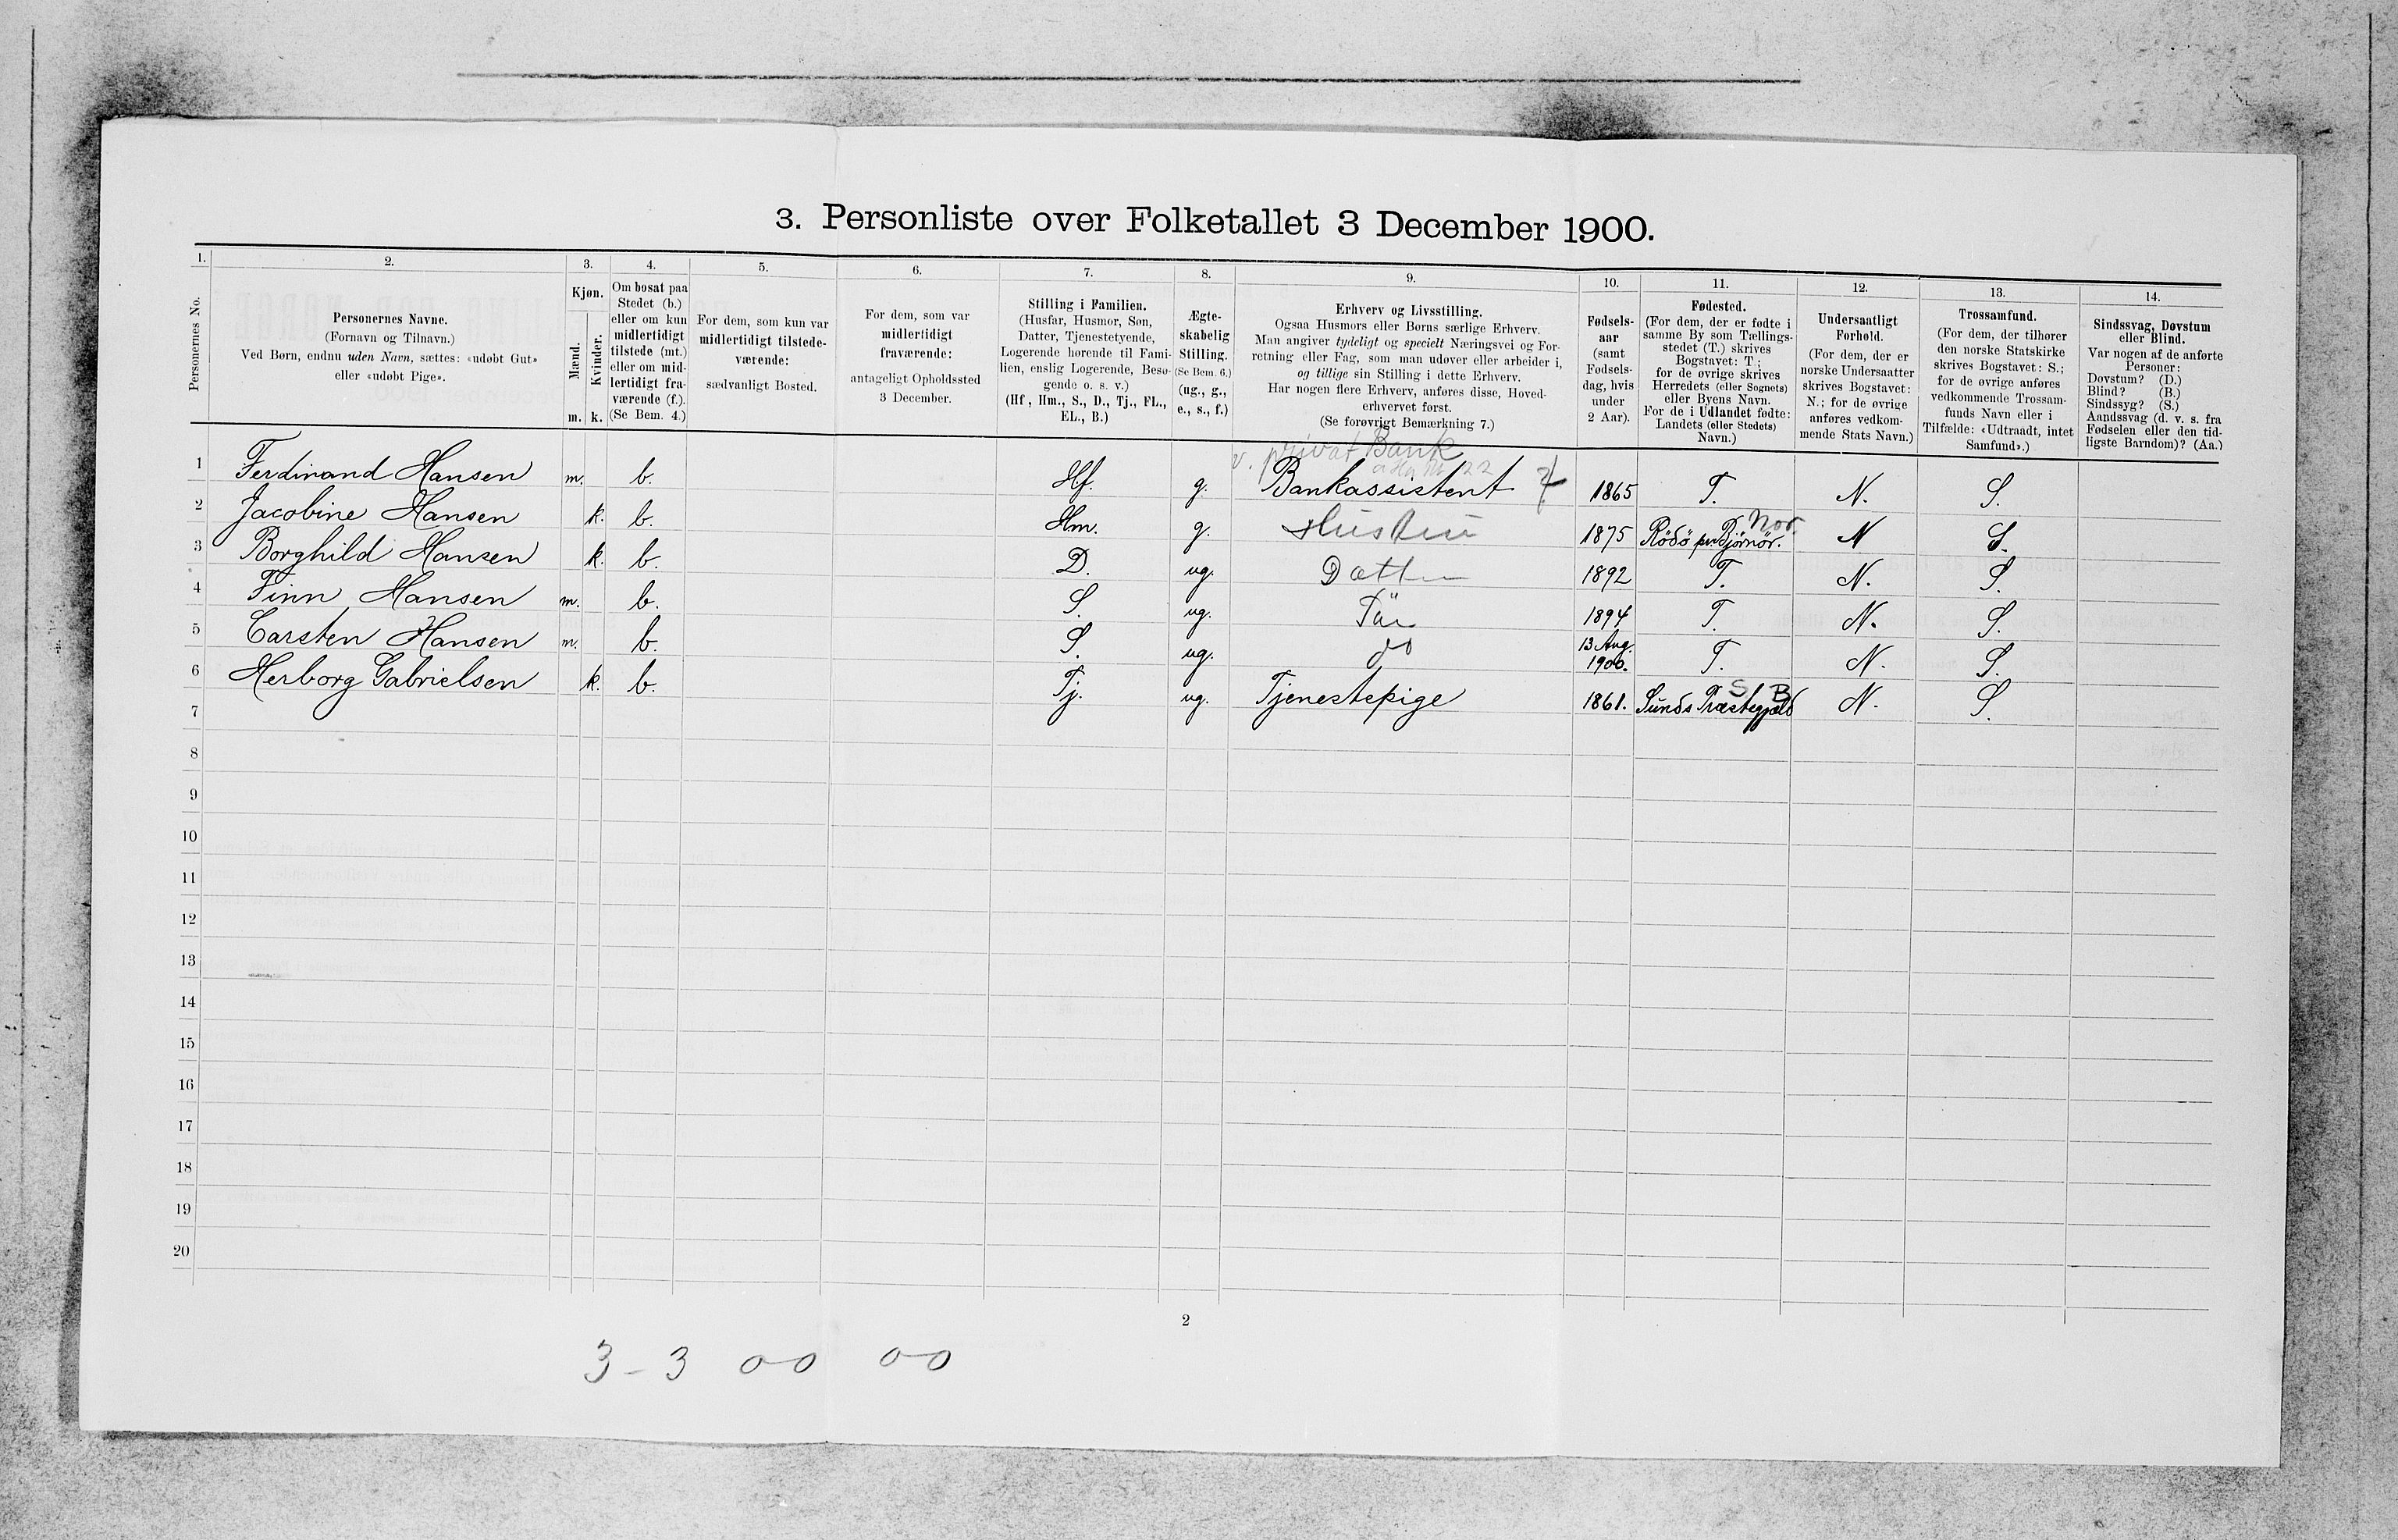 3. Personliste over Folketallet 3 December 1900.
1. 2. 3. 4. 5. 6. 7. 8. 9. 10. 11. 12. 13. 14.
Personernes No.
Personernes Navne.
(Fornavn og Tilnavn.)
Ved Børn, endnu uden Navn, sættes: «udøbt Gut»
eller «udøbt Pige».
Kjøn.
Mænd.
Kvinder.
m. k.
Om bosat paa
Stedet (b.)
eller om kun
midlertidigt
tilstede (mt.)
eller om mid-
lertidigt fra-
værende (f.).
(Se Bem. 4.)
For dem, som kun var
midlertidigt tilstede-
værende:
sædvanligt Bosted.
For dem, som var
midlertidigt
fraværende:
antageligt Opholdssted
3 December.
Stilling i Familien.
(Husfar, Husmor, Søn,
Datter, Tjenestetyende,
Logerende hørende til Fami-
lien, enslig Logerende, Besø-
gende o. s. v.)
(Hf, Hm., S., D., Tj., FL.,
EL., B.)
Ægte-
skabelig
Stilling.
(Se Bem. 6.)
(ug., g.,
e., s., f.)
Erhverv og Livsstilling.
Ogsaa Husmors eller Børns særlige Erhverv.
Man angiver tydeligt og specielt Næringsvei og For-
retning eller Fag, som man udøver eller arbeider i,
og tillige sin Stilling i dette Erhverv.
Har nogen flere Erhverv, anføres disse, Hoved-
erhvervet først.
(Se forøvrigt Bemærkning 7.)
Fødsels-
aar
(samt
Fødsels-
dag, hvis
under
2 Aar).
Fødested.
(For dem, der er fødte i
samme By som Tællings-
stedet (T.) skrives
Bogstavet: T.;
for de øvrige skrives
Herredets (eller Sognets)
eller Byens Navn.
For de i Udlandet fødte:
Landets (eller Stedets)
Navn.)
Undersaatligt
Forhold.
(For dem, der er
norske Undersaatter
skrives Bogstavet:
N.; for de øvrige
anføres vedkom-
mende Stats Navn.)
Trossamfund.
(For dem, der tilhører
den norske Statskirke
skrives Bogstavet: S.;
for de øvrige anføres
vedkommende Trossam-
funds Navn eller i
Tilfælde: «Udtraadt, intet
Samfund».)
Sindssvag, Døvstum
eller Blind.
Var nogen af de anførte
Personer:
Døvstum? (D.)
Blind? (B.)
Sindssyg? (S.)
Aandssvag (d. v. s. fra
Fødselen eller den tid-
ligste Barndom)? (Aa.)
v. privat Bank
1 Ferdinand Hansen m. b. Hf. g. Bankassistent 1865 T. N. S.
Nor.
2 Jacobine Hansen k. b. Hm. g. Hustru 1875 Rödö pr Björnör. N S.
3 Borghild Hansen k. b. D. ug. Datter 1892 T. N. S.
4 Finn Hansen m. b. S. ug. Sön 1894 T. N. S.
5 Carsten Hansen m. b. S. ug. do 13 Aug. 1900. T. N. S.
S B
6 Herborg Gabrielsen k. b. Tj. ug. Tjenestepige 1861. Sunds Præstegjeld N. S.
7
8
9
10
11
12
13
14
15
16
17
18
19
20
2
3 - 3 0-0 0-0